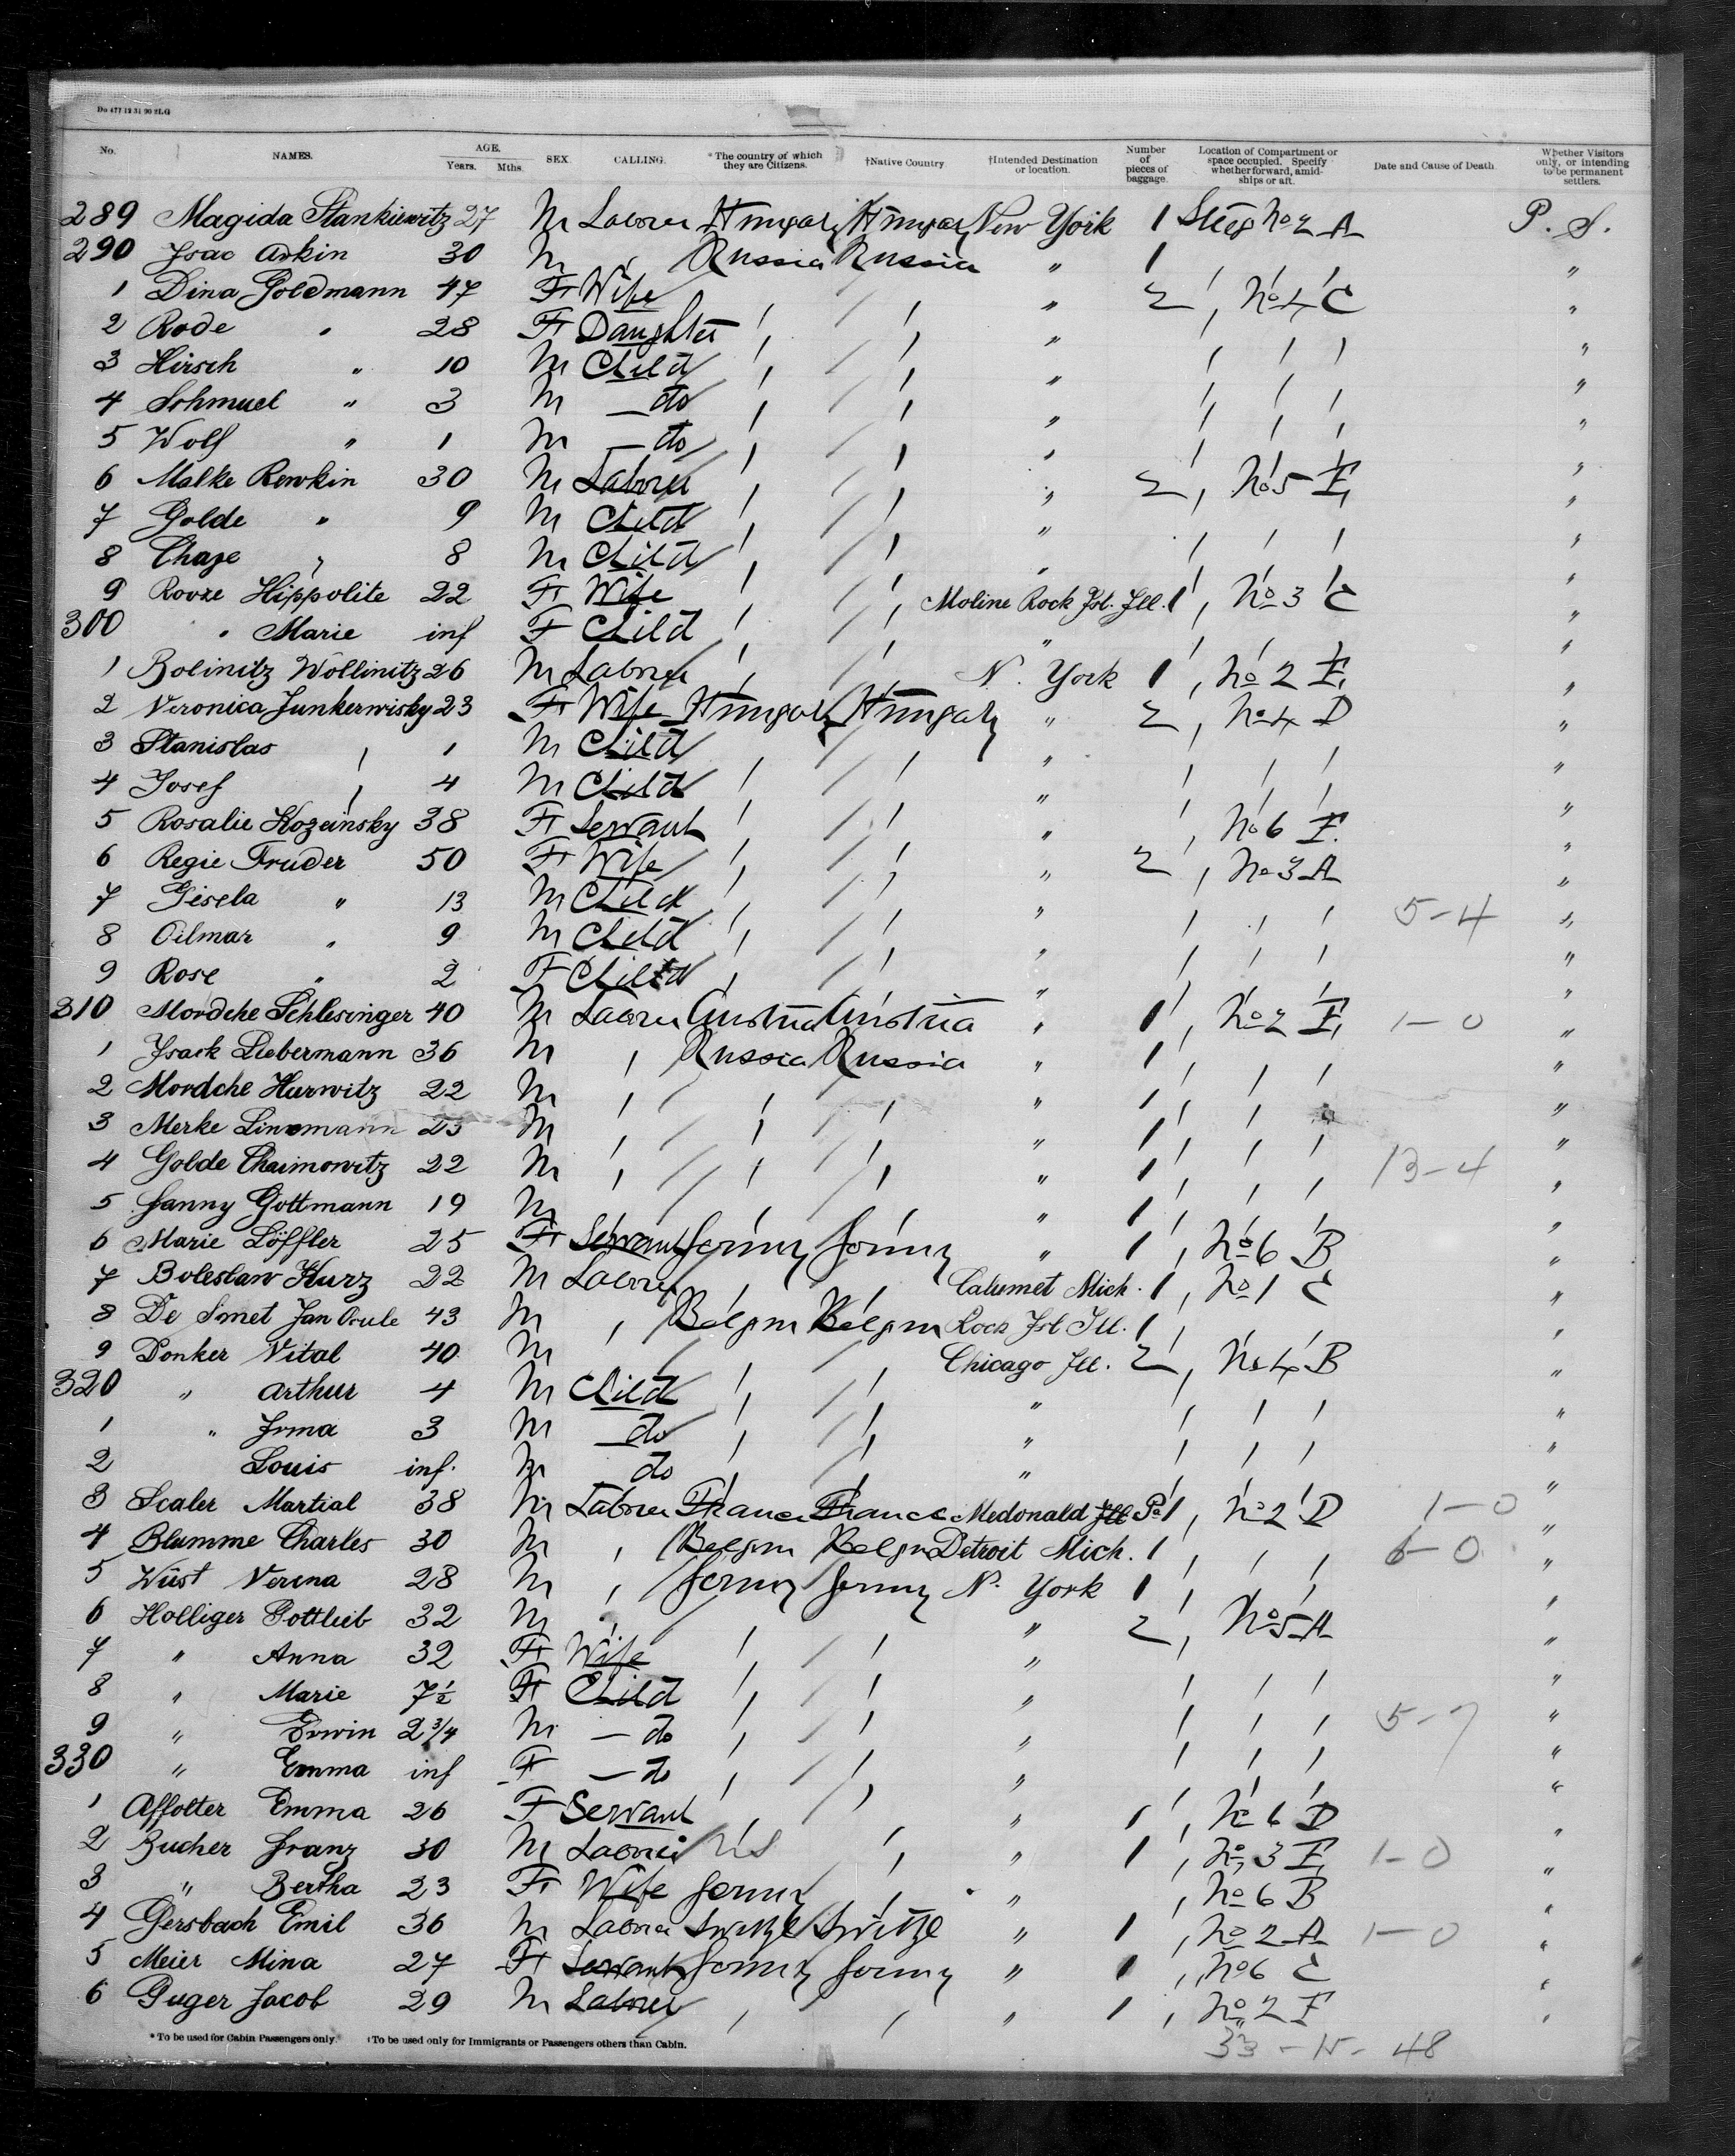 Do 477 12 31 90 2LG
No. NAMES. AGE. Years. Mths. SEX. CALLING. *The country of which they are Citizens. †Native Country. †Intended Destination or location. Number of pieces of baggage. Location of Compartment or space occupied. Specify whether forward, amidships or aft. Date and Cause of Death. Whether Visitors only, or intending to be permanent settlers.
289 Magida Stankiewitz 27 M Laborer Hungary Hungary New York 1 Steerg No 2 A P. S.
290 Isac Askin 30 M " Russia Russia " 1 "
1 Dina Goldmann 47 F Wife " " " 2 " No 4 C "
2 Rode " 28 F Daughter " " " " " " "
3 Hirsch " 10 M Child " " " " " " "
4 Schmuel " 3 M — do " " " " " " "
5 Wolf " 1 M — do " " " " " " "
6 Malke Rewkin 30 M Laborer " " " 2 " No 5 E "
7 Golde " 9 M Child " " " "
8 Chaze " 8 M Child " " " " " " "
9 Rooze Hippolite 22 F Wife " " Moline Rock Isl. Ill. 1 " No 3 C "
300 " Marie inf F Child " " " "
1 Bolinitz Wollinitz 26 M Laborer " " N. York 1 " No 2 E "
2 Veronica Junkerwisky 23 F Wife Hungary Hungary " 2 " No 4 D "
3 Stanislas " 1 M Child " " " "
4 Josef " 4 M Child " " " " " " "
5 Rosalie Kozeinsky 38 F Servant " " " " No 6 E. "
6 Regie Fruder 50 F Wife " " " 2 " No 3 A "
7 Gisela " 13 M Child " " " " " " 5-4 "
8 Oilmar " 9 M Child " " " " " " "
9 Rose " 2 F Child " " " " " " "
310 Mordche Schlesinger 40 M Laborer Austria Austria " 1 " No 2 E 1-0 "
1 Isack Liebermann 36 M " Russia Russia " 1 " " " "
2 Mordche Hurwitz 22 M " " " " 1 " " " "
3 Merke Linnemann 23 M " " " " 1 " " " "
4 Golde Chaimowitz 22 M " " " " 1 " " " 13-4 "
5 Fanny Gottmann 19 M " " " " 1 " " " "
6 Marie Löffler 25 F Servant Germy Germy " 1 " No 6 B "
7 Boleslaw Kurz 22 M Laborer " " Calumet Mich. 1 " No 1 C "
8 De Smet Jan Oule 43 M " Belgm Belgm Rock Isl Ill. 1 "
9 Donker Vital 40 M " " " Chicago Ill. 2 " No 4 B "
320 " Arthur 4 M Child " " " " " " "
1 " Irma 3 M — do " " " " " " "
2 Louis inf. M do " " " "
3 Scaler Martial 38 M Laborer France France Medonald Ill Pa 1 " No 2 D 1-0 "
4 Blumme Charles 30 M " Belgm Belgm Detroit Mich. 1 " " " 6-0 "
5 Wüst Verena 28 M " Germy Germy N. York 1 "
6 Holliger Gottlieb 32 M " " " " 2 " No 5 A "
7 " Anna 32 F Wife " " " "
8 " Marie 7½ F Child " " " " " " "
9 " Erwin 2 3/4 M — do " " " " " " 5-7 "
330 " Emma inf F — do " " " " " " "
1 Affolter Emma 26 F Servant " " " 1 " No 6 D "
2 Bucher Franz 30 M Laborer US " " 1 " No 3 E 1-0 "
3 " Bertha 23 F Wife Germy " " " No 6 B "
4 Gersbach Emil 36 M Laborer Switzl Switzl " 1 " No 2 A 1-0 "
5 Meier Mina 27 F Servant Germy Germy " 1 " No 6 C "
6 Guger Jacob 29 M Laborer " " " 1 " No 2 E "
*To be used for Cabin Passengers only. †To be used only for Immigrants or Passengers others than Cabin.
33 - 15 - 48